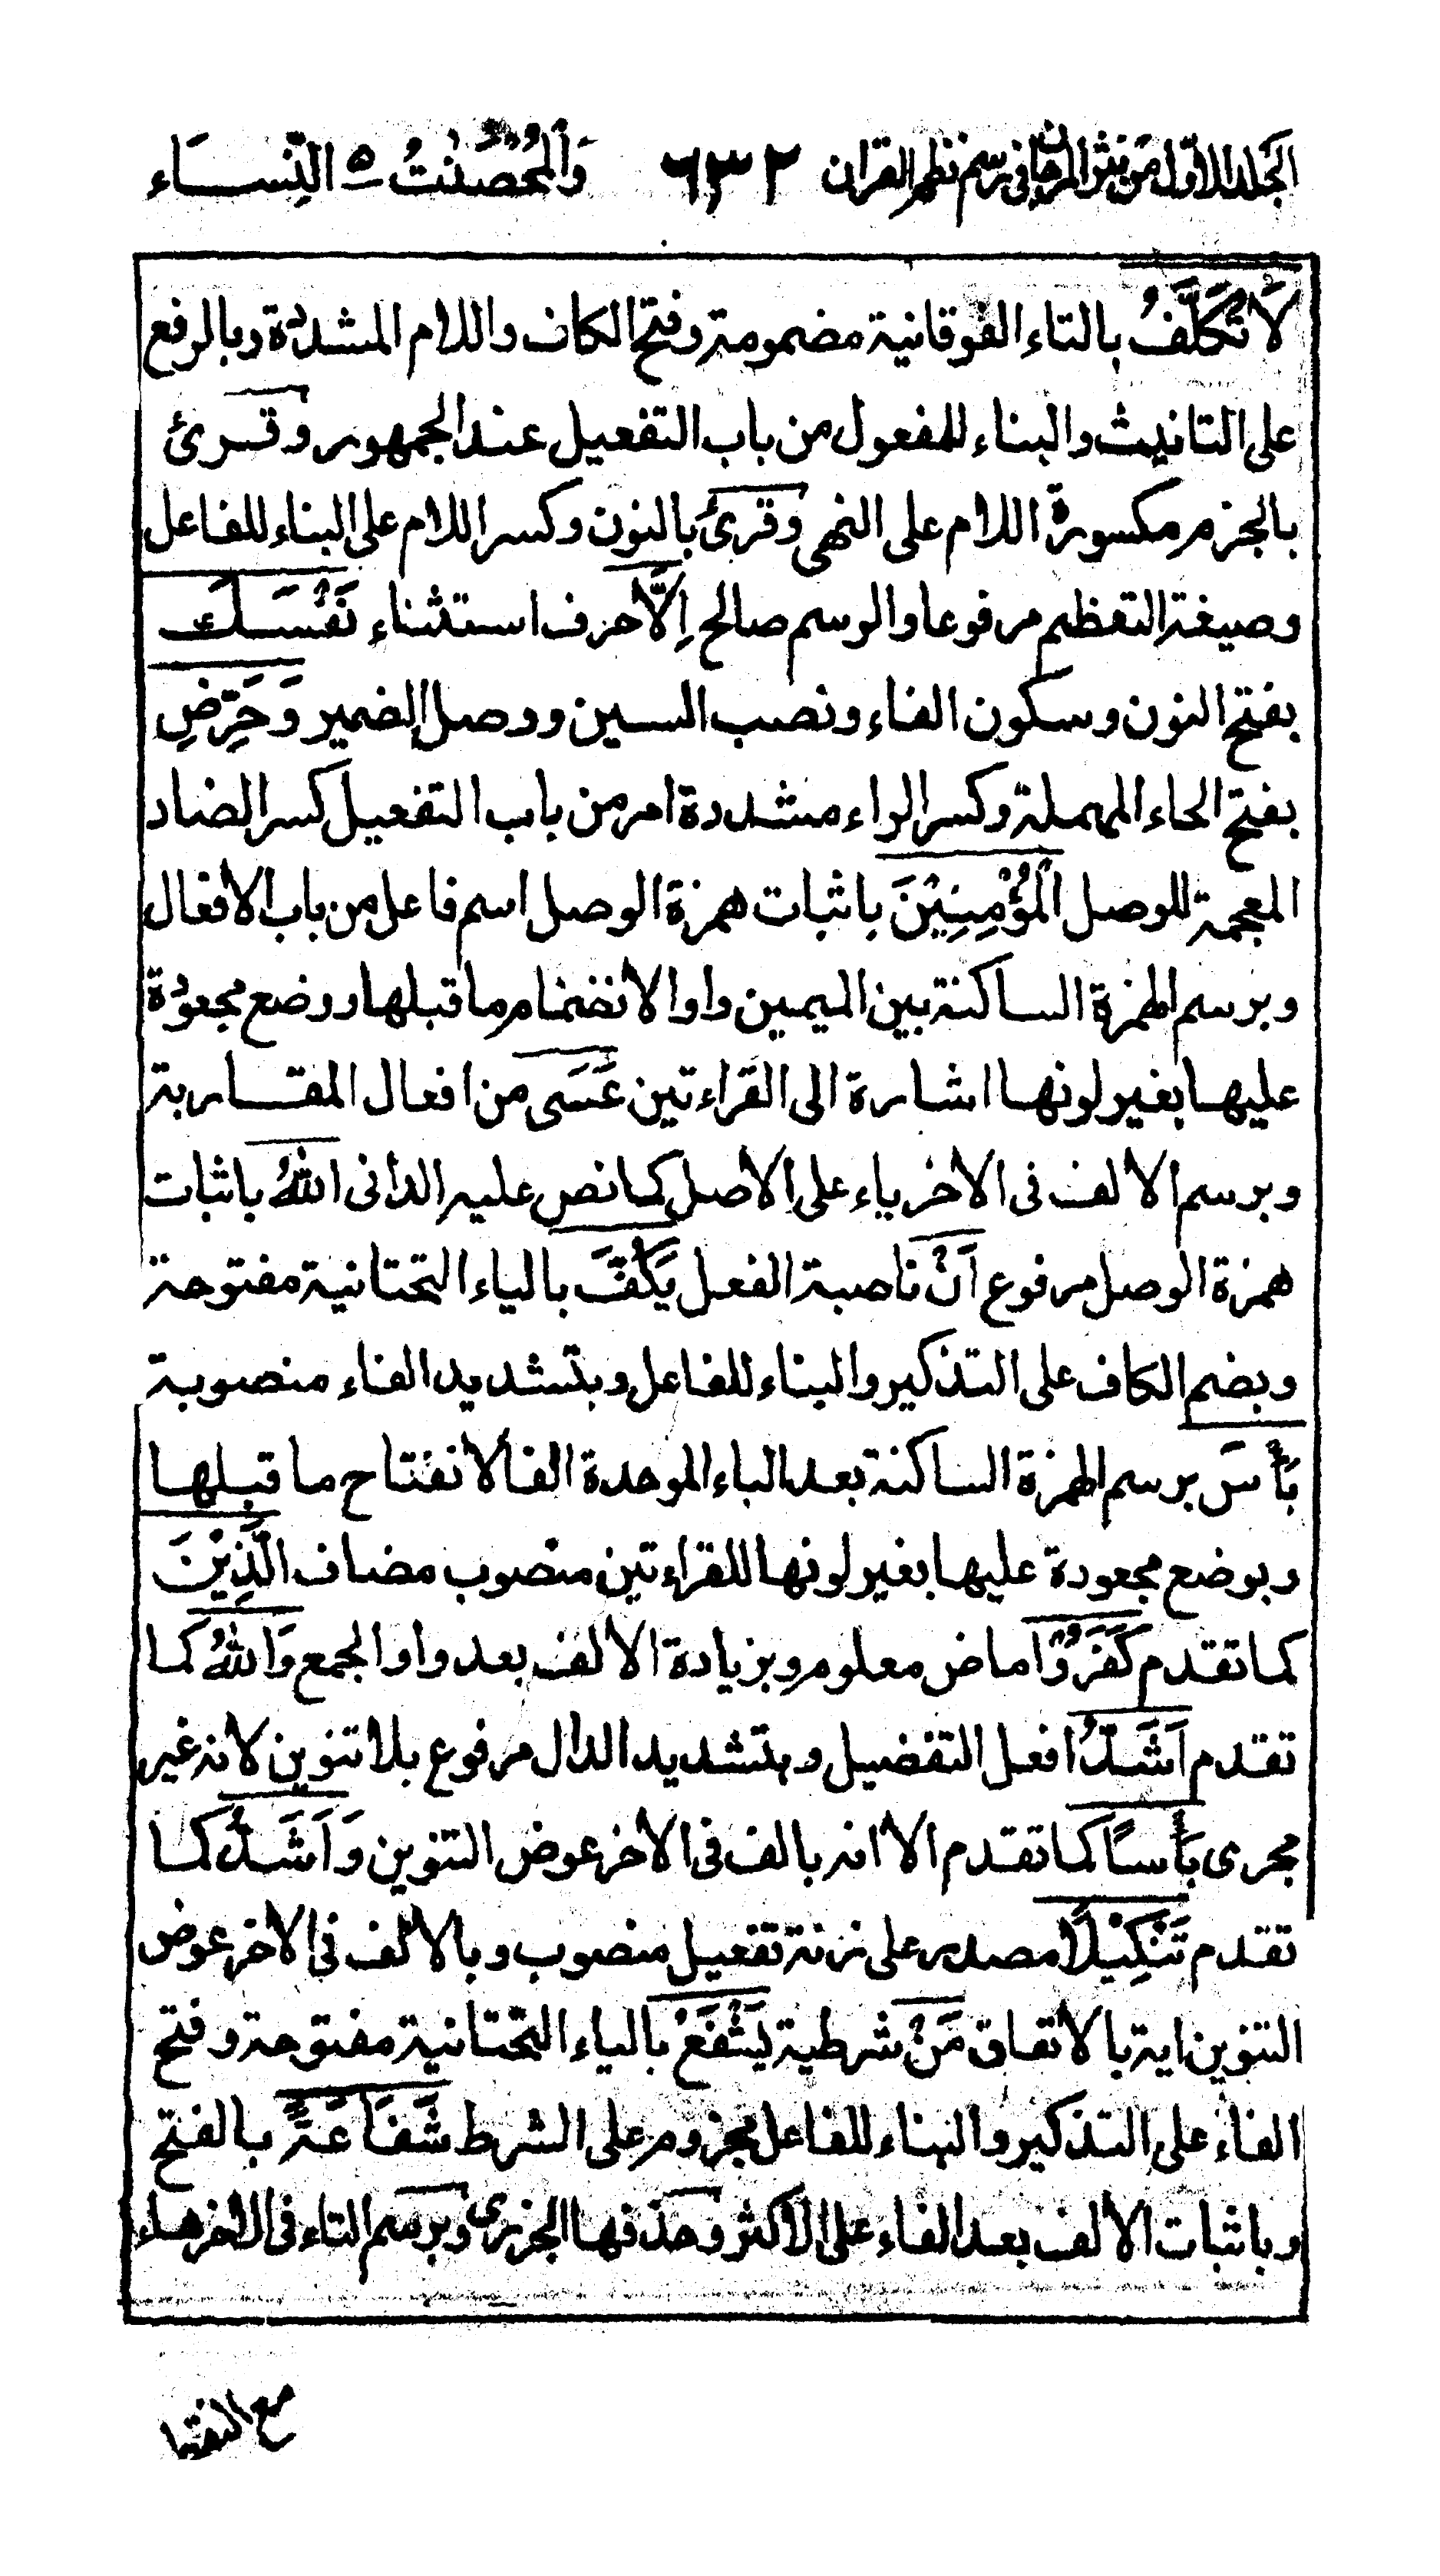 الجلد الاول من نثر المرجان فى رسم نظم القران ٦٣٢ وَالْمُحْصَنٰتُ ٥ النِّسَاء
لَا تُكَلَّفُ بالتاء الفوقانية مضمومة وفتح الكاف واللام المشددة وبالرفع
على التانيث والبناء للمفعول من باب التفعيل عند الجمهور وقرئ
بالجزم مكسورة اللام على النهى وقرئ بالنون وكسر اللام على البناء للفاعل
وصيغة التعظيم مرفوعا والرسم صالح اِلَّا حرف استثناء نَفْسَكَ
بفتح النون وسكون الفاء ونصب السين ووصل الضمير وَحَرِّضِ
بفتح الحاء المهملة وكسر الراء مشددة امر من باب التفعيل كسر الضاد
المعجمة للوصل الْمُؤْمِنِيْنَ باثبات همزة الوصل اسم فاعل من باب الافعال
وبرسم الهمزة الساكنة بين الميمين واوا لانضمام ما قبلها ووضع مجعودة
عليها بغير لونها اشارة الى القراءتين عَسَى من افعال المقاربة
وبرسم الالف فى الاخر ياء على الاصل كما نص عليه الدانى اللّٰهُ باثبات
همزة الوصل مرفوع اَنْ ناصبة الفعل يَكُفَّ بالياء التحتانية مفتوحة
وبضم الكاف على التذكير والبناء للفاعل وبتشديد الفاء منصوبة
بَأْسَ برسم الهمزة الساكنة بعد الباء الموحدة الفا لانفتاح ما قبلها
وبوضع مجعودة عليها بغير لونها للقراءتين منصوب مضاف الَّذِيْنَ
كما تقدم كَفَرُوْا ماض معلوم وبزيادة الالف بعد واو الجمع وَاللّٰهُ كما
تقدم اَشَدُّ افعل التفضيل وبتشديد الدال مرفوع بلا تنوين لانه غير
مجرى بَأْسًا كما تقدم الا انه بالف فى الاخر عوض التنوين وَاَشَدُّ كما
تقدم تَنْكِيْلًا مصدر على زنة تفعيل منصوب وبالالف فى الاخر عوض
التنوين اية بالاتفاق مَنْ شرطية يَشْفَعْ بالياء التحتانية مفتوحة وفتح
الفاء على التذكير والبناء للفاعل مجزوم على الشرط شَفَاعَةً بالفتح
وباثبات الالف بعد الفاء على الاكثر وحذفها الجزرى وبرسم التاء فى الاخر هاء
مع النقتا